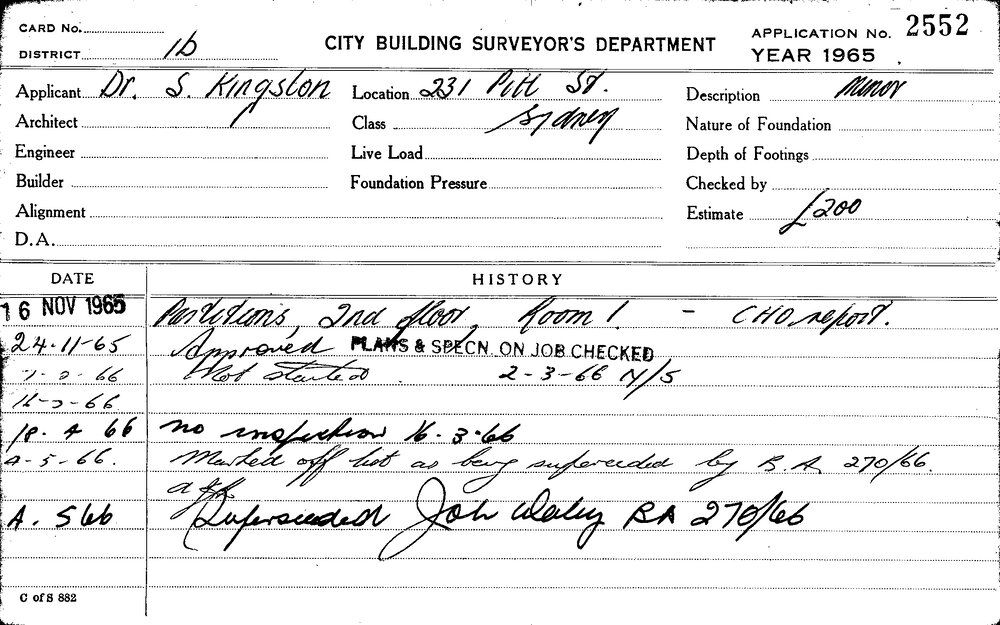 CARD No.
CITY BUILDING SURVEYOR'S DEPARTMENT
APPLICATION No. 2552
DISTRICT 1b
YEAR 1965
Applicant Dr. S. Kingston
Location 231 Pitt St. Sydney
Description Minor
Architect
Class
Nature of Foundation
Engineer
Live Load
Depth of Footings
Builder
Foundation Pressure
Checked by
Alignment
Estimate £200
D.A.
DATE
HISTORY
16 NOV 1965 Partitions, 2nd floor, Room 1. - CHO report.
24-11-65 Approved PLANS & SPECN. ON JOB CHECKED
66 Not started 2-3-66 N/S
66
18. 4 66 no inspection 16.3.66
4-5-66. Marked off list as being superseded by B.A. 270/66.
4. 5 66 Superseded Job BA 270/66
C of S 882